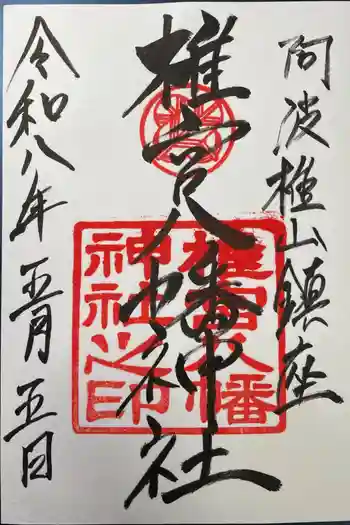 阿波椎山鎮座
椎宮八幡神社
椎宮八幡
神社之印
令和八年五月五日